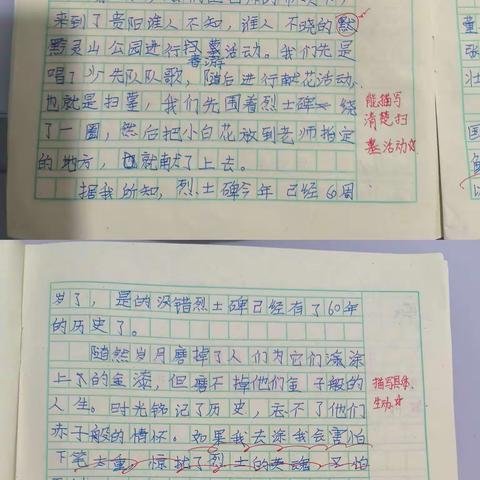 来到了贵阳谁人不知，谁人不晓的黔
黔灵山公园进行扫墓活动。我们先是
唱了少先队队歌，随后进行献花活动，
也就是扫墓，我们先围着烈士碑绕
了一圈，然后把小白花放到老师指定
的地方，也就献了上去。
据我所知，烈士碑今年已经60周
能描写
清楚扫
墓活动
岁了，是的没错烈士碑已经有了60年
的历史了。
随然岁月磨掉了人们为它们涂
上的金漆，但磨不掉他们金子般的
人生。时光铭记了历史，忘不了他们
赤子般的情怀。如果我去涂我会害怕
下笔太重，惊扰了烈士的英魂，又怕
描写具体、
生动